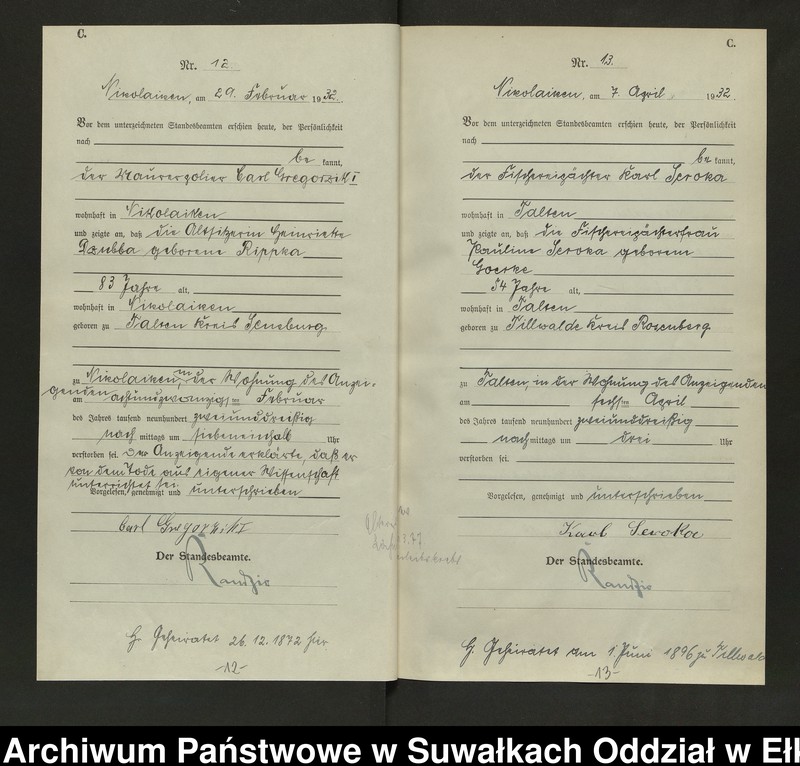 C.
Nr. 12
Nikolaiken, am 29. Februar 1932.
Vor dem unterzeichneten Standesbeamten erschien heute, der Persönlichkeit
nach
be kannt,
der Maurerpolier Carl Gregorzik I
wohnhaft in Nikolaiken
und zeigte an, daß die Altsitzerin Heinriette
Dzubba geborene Rippka
83 Jahre alt,
wohnhaft in Nikolaiken
geboren zu Talten Kreis Sensburg
zu Nikolaiken, in der Wohnung des Anzei-
genden
am achtundzwanzigsten Februar
des Jahres tausend neunhundert zweiunddreißig
nach mittags um siebeneinhalb Uhr
verstorben sei. Der Anzeigende erklärte, daß er
von dem Tode aus eigener Wissenschaft
unterrichtet sei.
Vorgelesen, genehmigt und unterschrieben
Carl Gregorzik I
Der Standesbeamte.
Randzio
G. Geheiratet 26.12.1872 hier
-12-
C.
Nr. 13.
Nikolaiken, am 7. April 1932.
Vor dem unterzeichneten Standesbeamten erschien heute, der Persönlichkeit
nach
be kannt,
der Fischereipächter Karl Seroka
wohnhaft in Talten
und zeigte an, daß die Fischereipächterfrau
Pauline Seroka geborene
Goerke
54 Jahre alt,
wohnhaft in Talten
geboren zu Tillwalde Kreis Rosenberg
zu Talten, in der Wohnung des Anzeigenden
am sechsten April
des Jahres tausend neunhundert zweiunddreißig
nach mittags um drei Uhr
verstorben sei.
Vorgelesen, genehmigt und unterschrieben
Karl Seroka
Der Standesbeamte.
Randzio
G. Geheiratet am 1. Juni 1896 zu Tillwalde
-13-
Archiwum Państwowe w Suwałkach Oddział w Ełk